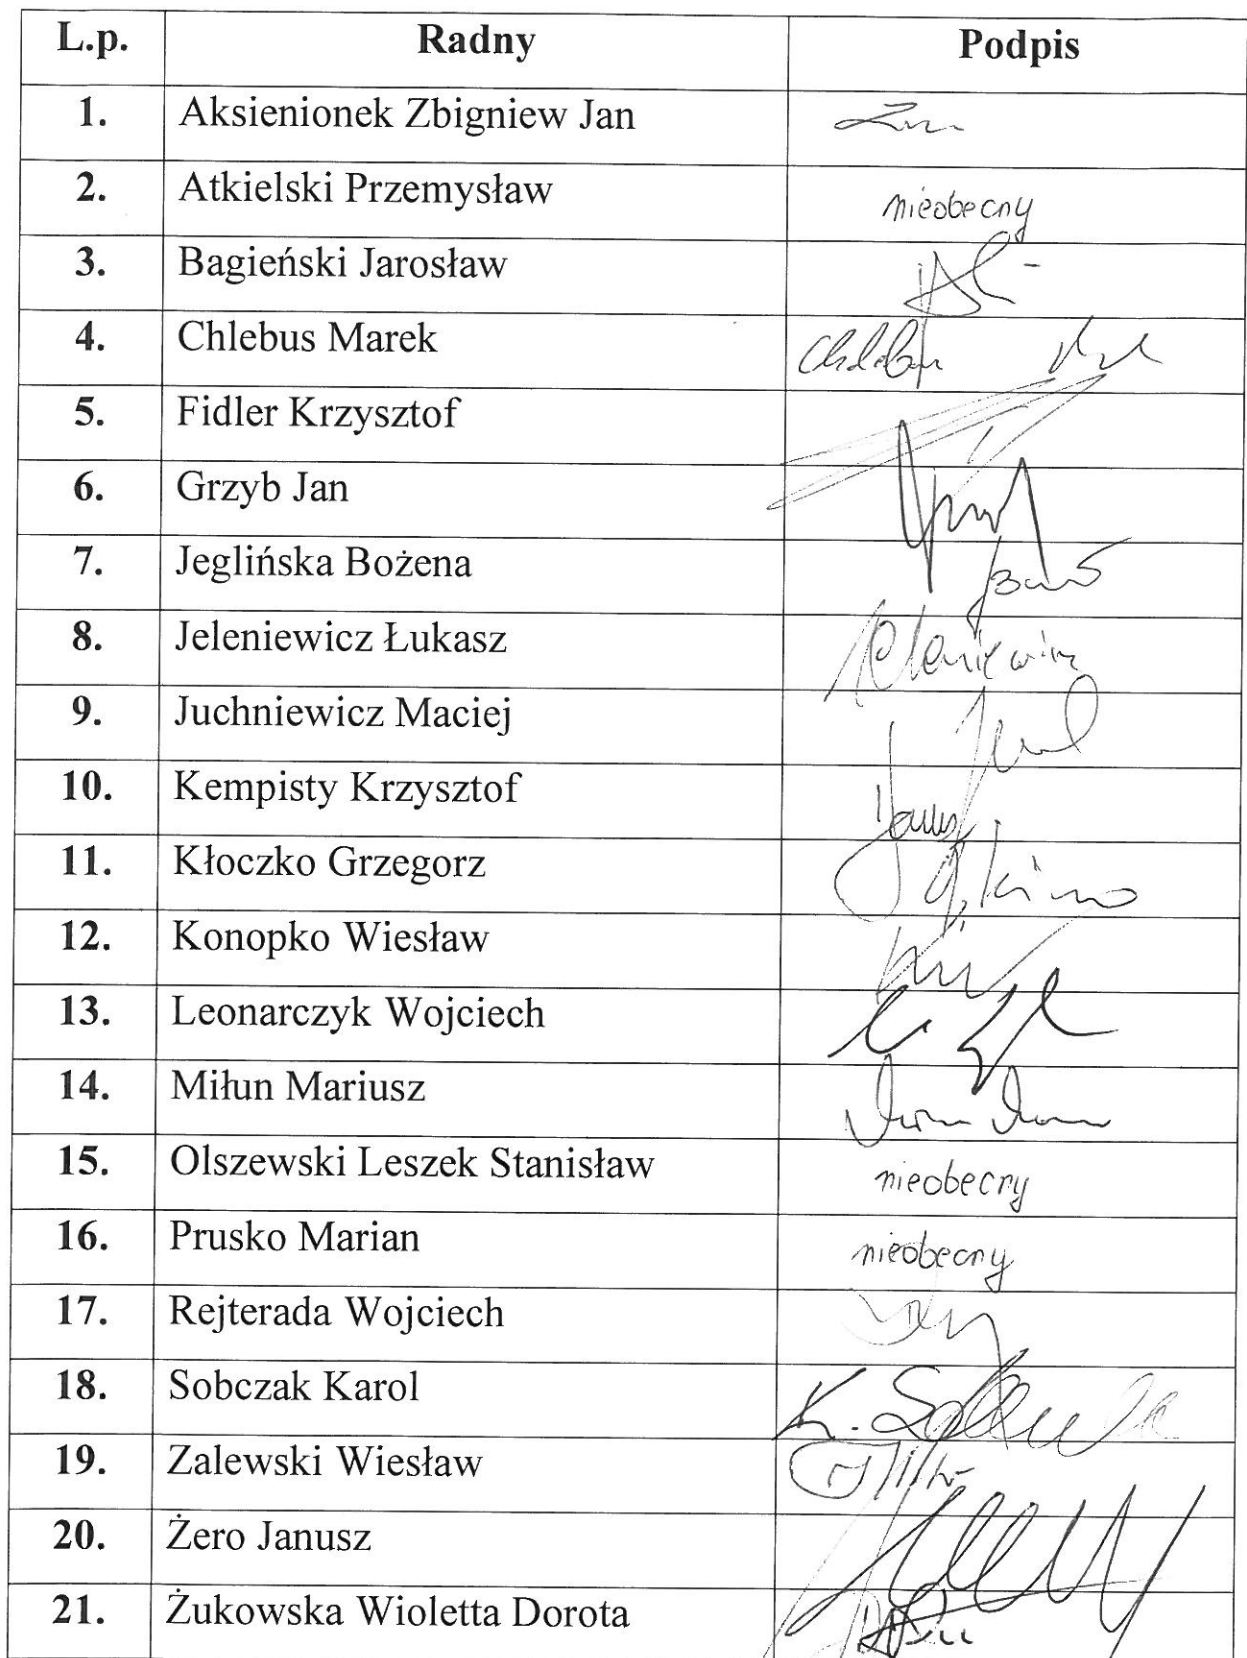 L.p. Radny Podpis
1. Aksienionek Zbigniew Jan
2. Atkielski Przemysław nieobecny
3. Bagieński Jarosław
4. Chlebus Marek
5. Fidler Krzysztof
6. Grzyb Jan
7. Jeglińska Bożena
8. Jeleniewicz Łukasz Jeleniewicz
9. Juchniewicz Maciej
10. Kempisty Krzysztof
11. Kłoczko Grzegorz
12. Konopko Wiesław
13. Leonarczyk Wojciech
14. Miłun Mariusz
15. Olszewski Leszek Stanisław nieobecny
16. Prusko Marian nieobecny
17. Rejterada Wojciech
18. Sobczak Karol
19. Zalewski Wiesław
20. Żero Janusz
21. Żukowska Wioletta Dorota